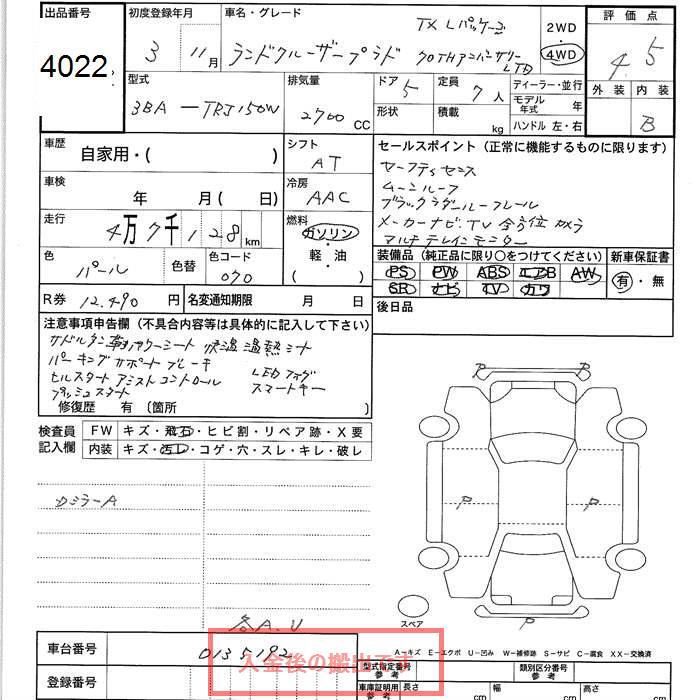 出品番号
4022
初度登録年月
3 11月
車名・グレード
TX Lパッケージ
ランドクルーザープラド 70THアニバーサリー
LTD
2WD
4WD
評価点
4.5
外装 内装
B
型式
3BA-TRJ150W
排気量
2700 CC
ドア 5
形状
定員 7人
積載 kg
ディーラー・並行
モデル年式 年
ハンドル 左・右
車歴
自家用・( )
シフト
AT
車検
年 月( 日)
冷房
AAC
走行
4万7千128km
燃料
ガソリン
軽・油
( )
色
パール
色替
色コード
070
R券 12,490 円
名変通知期限 月 日
セールスポイント(正常に機能するものに限ります)
セーフティセンス
ムーンルーフ
ブラックラダールーフレール
メーカーナビ.TV 全方位カメラ
マルチテレインモニター
装備品(純正品に限り○をつけてください)
PS PW ABS エアB AW
SR ナビ TV カワ
新車保証書
有・無
後日品
注意事項申告欄(不具合内容等は具体的に記入して下さい)
サドルタン 革 パワーシート 快温温熱シート
パーキングサポートブレーキ
LEDフォグ
ヒルスタートアシストコントロール
スマートキー
プッシュスタート
修復歴 有 〔箇所 〕
検査員記入欄
FW キズ・飛石・ヒビ割・リペア跡・X要
内装 キズ・汚レ・コゲ・穴・スレ・キレ・破レ
カミラーA
各A.U
P
P
P
P
スペア
A-キズ E-エクボ U-凹み W-補修跡 S-サビ C-腐食 XX-交換済
車台番号
0135192
入金後の搬出です
登録番号
型式指定番号
参考
類別区分番号
参考
車庫証明用
参考
長さ cm
幅 cm
高さ cm